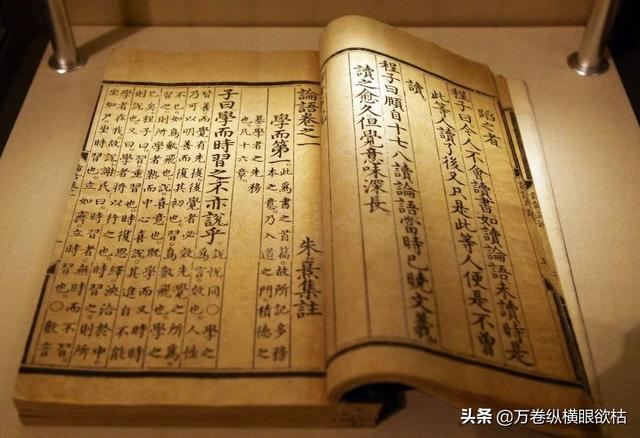 蹈之者
程子曰今人不會讀書如讀論語未讀時是
此等人讀了後又只是此等人便是不曾
讀
程子曰頤自十七八讀論語當時已曉文義
讀之愈久但覺意味深長
論語卷之一
朱熹集註
學而第一
此爲書之首篇。故所記多務
本之意。乃入道之門。積德之
基學者之先務
也凡十六章
子曰學而時習之不亦說乎
說悅同○學之
爲言效也。人性
皆善而覺有先後後覺者必效先覺之所爲
乃可以明善而復其初也。習鳥數飛也。學之
不已如鳥數飛也。說喜意也。既學而又時時
習之則所學者熟而中心喜說其進自不能
已矣程子曰習重習也時復思繹浹洽於中
則說也又曰學者將以行之也時習之則所
學者在我故說謝氏曰時習者無時而不習
坐如尸坐時習也立如齊立時習也。○數音
头条 @万卷纵横眼欲枯